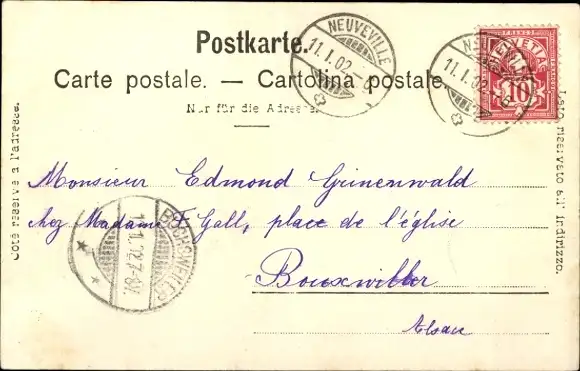 Postkarte.
Carte postale. — Cartolina postale.
Nur für die Adresse.
Côté réservé à l'adresse.
Lato riservato all' indirizzo.
NEUVEVILLE
11.I.02.
NEUVEVILLE
11.I.02.
FRANCO
HELVETIA
10
Monsieur Edmond Grinenwald
chez Madame F. Gall, place de l'église
Bouxwiller
Alsace
BUCHSWEILER